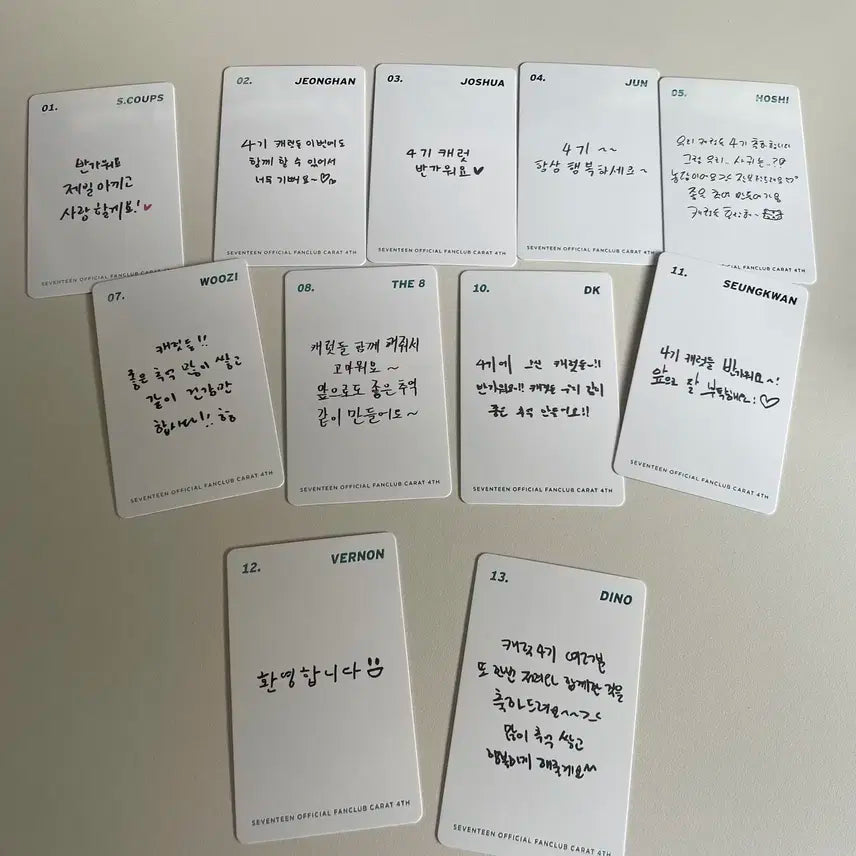 01.
S.COUPS
반가워요
제일 아끼고
사랑할게요!
02.
JEONGHAN
4기 캐럿들 이번에도
함께 할 수 있어서
너무 기뻐요~
SEVENTEEN OFFICIAL FANCLUB CARAT 4TH
03.
JOSHUA
4기 캐럿
반가워요♥
SEVENTEEN OFFICIAL FANCLUB CARAT 4TH
04.
JUN
4기 ~~
항상 행복하세요~
SEVENTEEN OFFICIAL FANCLUB CARAT 4TH
05.
HOSHI
우리 캐럿들 4기 축하합니다
그럼 우리.. 사귀는..?
농담이에요
좋은 추억 만들어가요
캐럿들
SEVENTEEN OFFICIAL FANCLUB CARAT 4TH
07.
WOOZI
캐럿들!!
좋은 추억 많이 쌓고
같이 건강만
합시다!!
SEVENTEEN OFFICIAL FANCLUB CARAT 4TH
08.
THE 8
캐럿들 함께 해줘서
고마워요~
앞으로도 좋은 추억
같이 만들어요~
SEVENTEEN OFFICIAL FANCLUB CARAT 4TH
10.
DK
4기에 오신 캐럿들~!!
반가워요!! 캐럿들 우리 같이
좋은 추억 만들어요!!
SEVENTEEN OFFICIAL FANCLUB CARAT 4TH
11.
SEUNGKWAN
4기 캐럿들 반가워요~!
앞으로 잘 부탁해요! ♡
SEVENTEEN OFFICIAL FANCLUB CARAT 4TH
12.
VERNON
환영합니다
SEVENTEEN OFFICIAL FANCLUB CARAT 4TH
13.
DINO
캐럿 4기 여러분
또 한번 저희와 함께한 것을
축하드려요~~>_<
많이 추억 쌓고
행복하게 해줄게요~
SEVENTEEN OFFICIAL FANCLUB CARAT 4TH